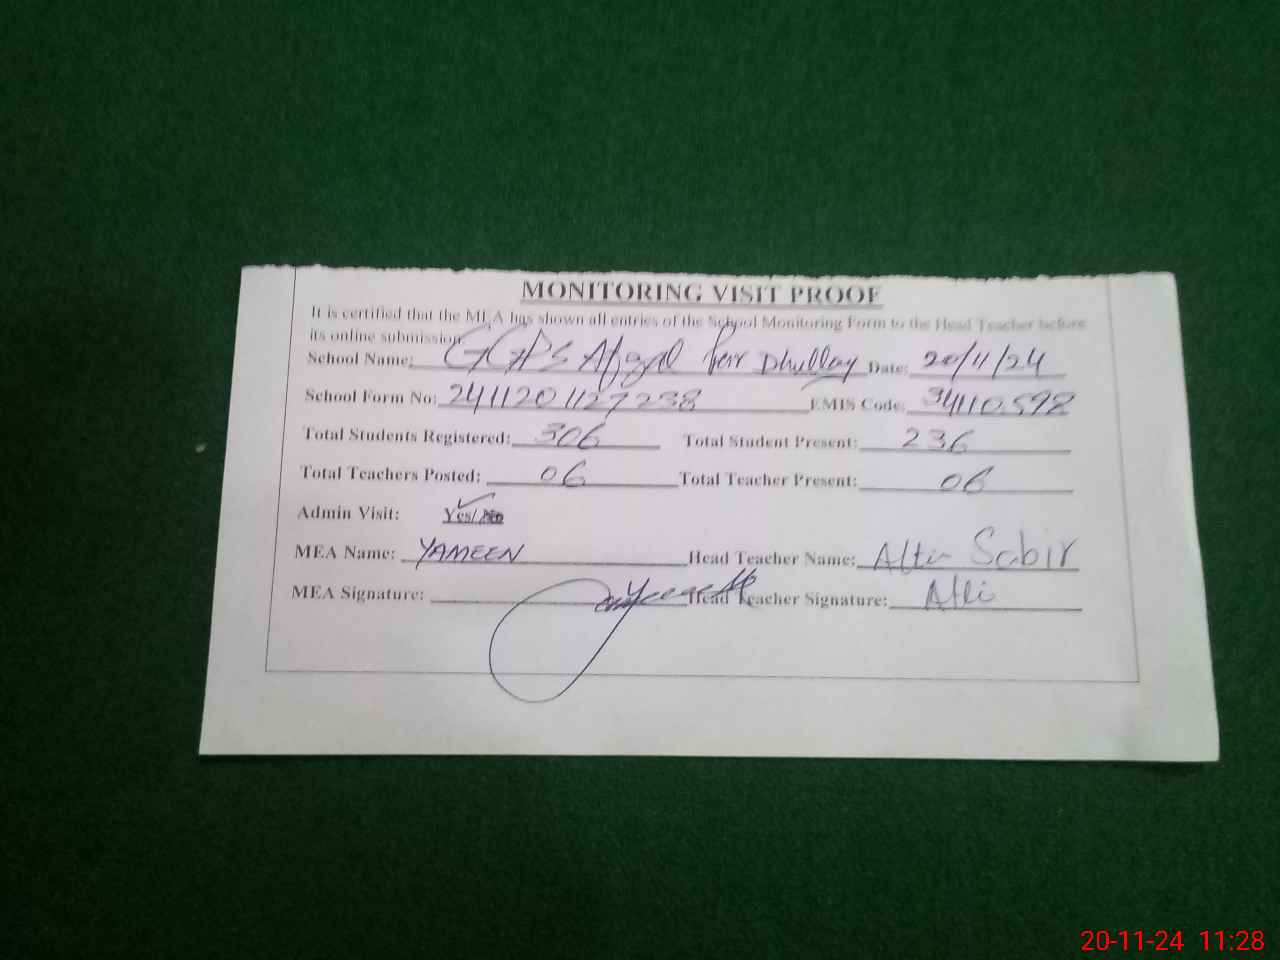 MONITORING VISIT PROOF
It is certified that the MEA has shown all entries of the School Monitoring Form to the Head Teacher before
its online submission.
School Name: GGPS Afzal Pur Dhullay Date: 20/11/24
School Form No: 2411201127238 EMIS Code: 34110598
Total Students Registered: 306 Total Student Present: 236
Total Teachers Posted: 06 Total Teacher Present: 06
Admin Visit: Yes/No
MEA Name: YAMEEN Head Teacher Name: Sabir
MEA Signature: Head Teacher Signature:
20-11-24 11:28